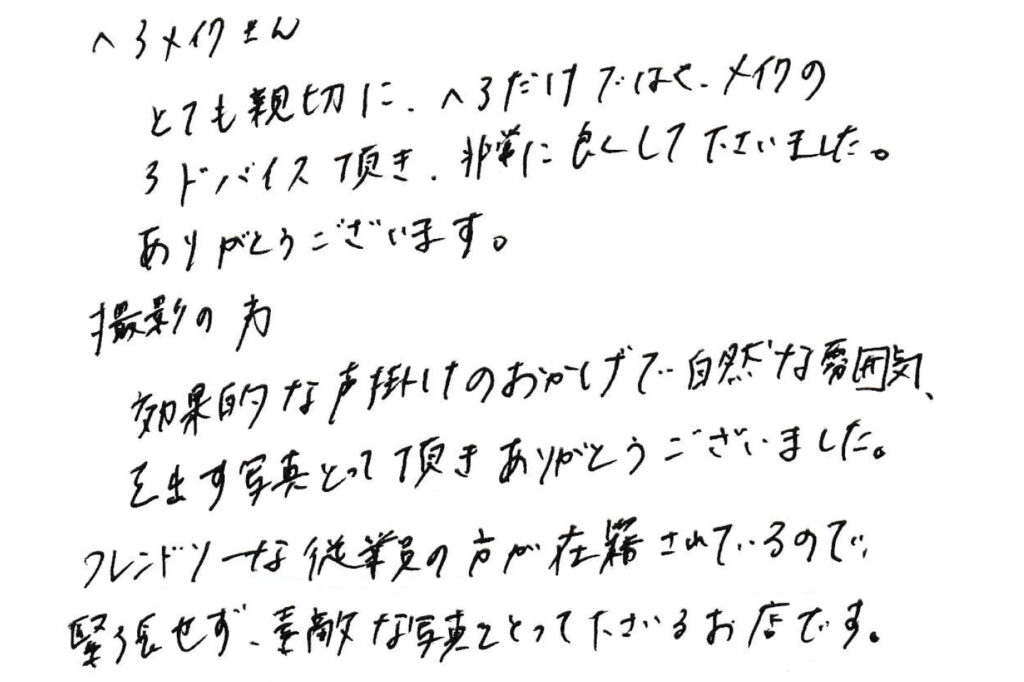 ヘアメイクさん
とても親切に、ヘアだけでなく、メイクの
アドバイス頂き、非常に良くして下さいました。
ありがとうございます。
撮影の方
効果的な声掛けのおかげで自然な雰囲気、
を出す写真とって頂きありがとうございました。
フレンドリーな従業員の方が在籍されているので、
緊張せず、素敵な写真をとって下さるお店です。